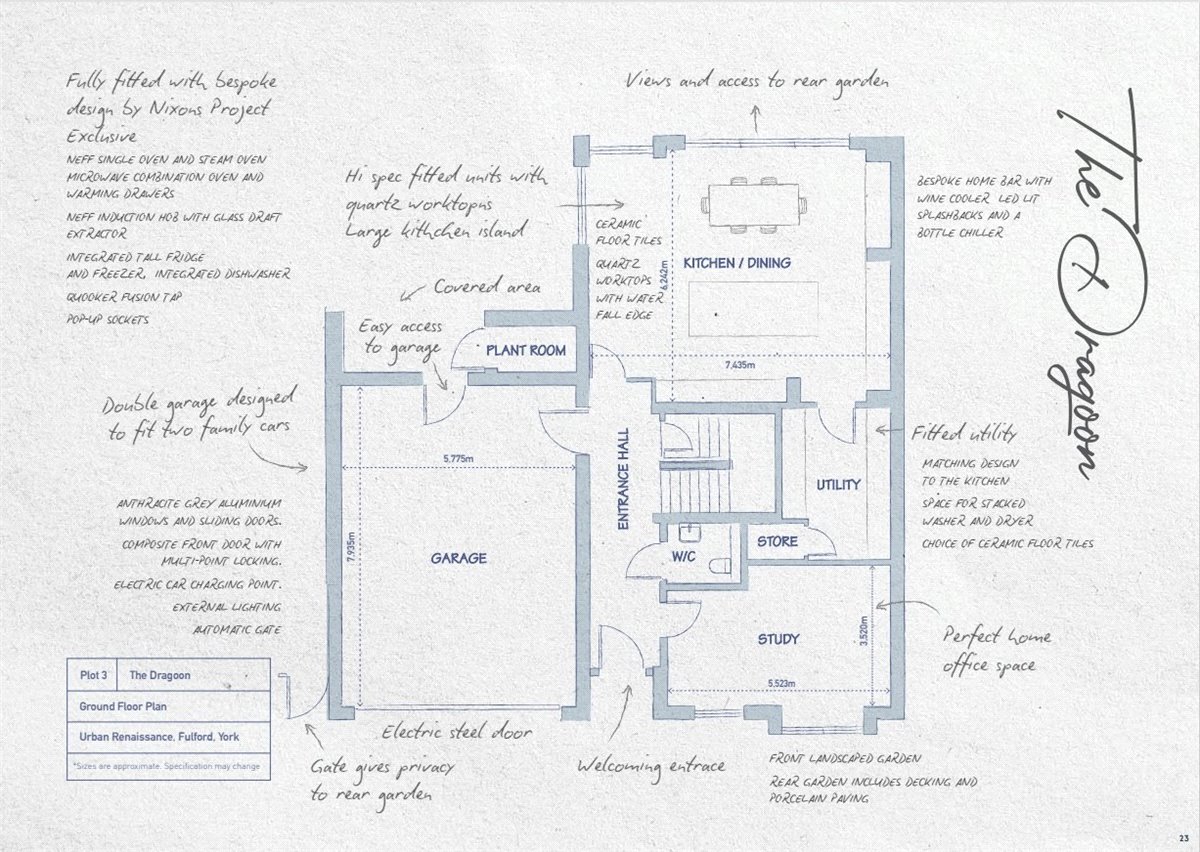 Fully fitted with bespoke
design by Nixons Project
Exclusive
NEFF SINGLE OVEN AND STEAM OVEN
MICROWAVE COMBINATION OVEN AND
WARMING DRAWERS
NEFF INDUCTION HOB WITH GLASS DRAFT
EXTRACTOR
INTEGRATED TALL FRIDGE
AND FREEZER, INTEGRATED DISHWASHER
QUOOKER FUSION TAP
POP-UP SOCKETS
Views and access to rear garden
Hi spec fitted units with
quartz worktopns
Large kithchen island
Covered area
Easy access
to garage
CERAMIC
FLOOR TILES
QUARTZ
WORKTOPS
WITH WATER
FALL EDGE
6,242m
KITCHEN / DINING
7,435m
BESPOKE HOME BAR WITH
WINE COOLER LED LIT
SPLASHBACKS AND A
BOTTLE CHILLER
The Dragoon
PLANT ROOM
Double garage designed
to fit two family cars
5,775m
7,935m
GARAGE
ENTRANCE HALL
UTILITY
STORE
W/C
Fitted utility
MATCHING DESIGN
TO THE KITCHEN
SPACE FOR STACKED
WASHER AND DRYER
CHOICE OF CERAMIC FLOOR TILES
ANTHRACITE GREY ALUMINIUM
WINDOWS AND SLIDING DOORS.
COMPOSITE FRONT DOOR WITH
MULTI-POINT LOCKING.
ELECTRIC CAR CHARGING POINT.
EXTERNAL LIGHTING
AUTOMATIC GATE
STUDY
3,520m
5,523m
Perfect home
office space
Plot 3 The Dragoon
Ground Floor Plan
Urban Renaissance, Fulford, York
*Sizes are approximate. Specification may change
Electric steel door
Gate gives privacy
to rear garden
Welcoming entrace
FRONT LANDSCAPED GARDEN
REAR GARDEN INCLUDES DECKING AND
PORCELAIN PAVING
23